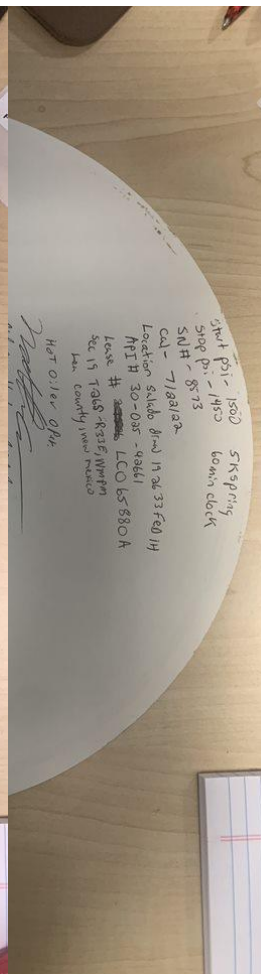 Start psi - 1500 5K spring
Stop psi - 1450 60 min clock
SN# - 8573
Cal - 7/22/22
Location Salado draw 19 26 33 Fed 1H
API # 30-025-42661
Lease # LC065880A
Sec 19 T26S-R33E, NMPM
Lea county, new mexico
HOT Oiler Oper